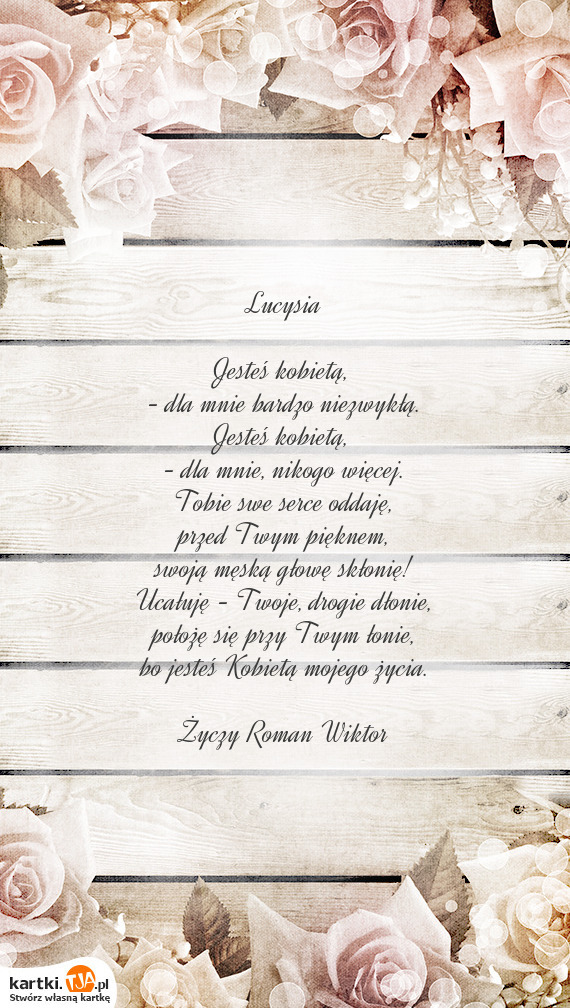 Lucysia
Jesteś kobietą,
- dla mnie bardzo niezwykłą.
Jesteś kobietą,
- dla mnie, nikogo więcej.
Tobie swe serce oddaję,
przed Twym pięknem,
swoją męską głowę skłonię!
Ucałuję - Twoje, drogie dłonie,
położę się przy Twym łonie,
bo jesteś Kobietą mojego życia.
Życzy Roman Wiktor
kartki.TJA.pl
Stwórz własną kartkę